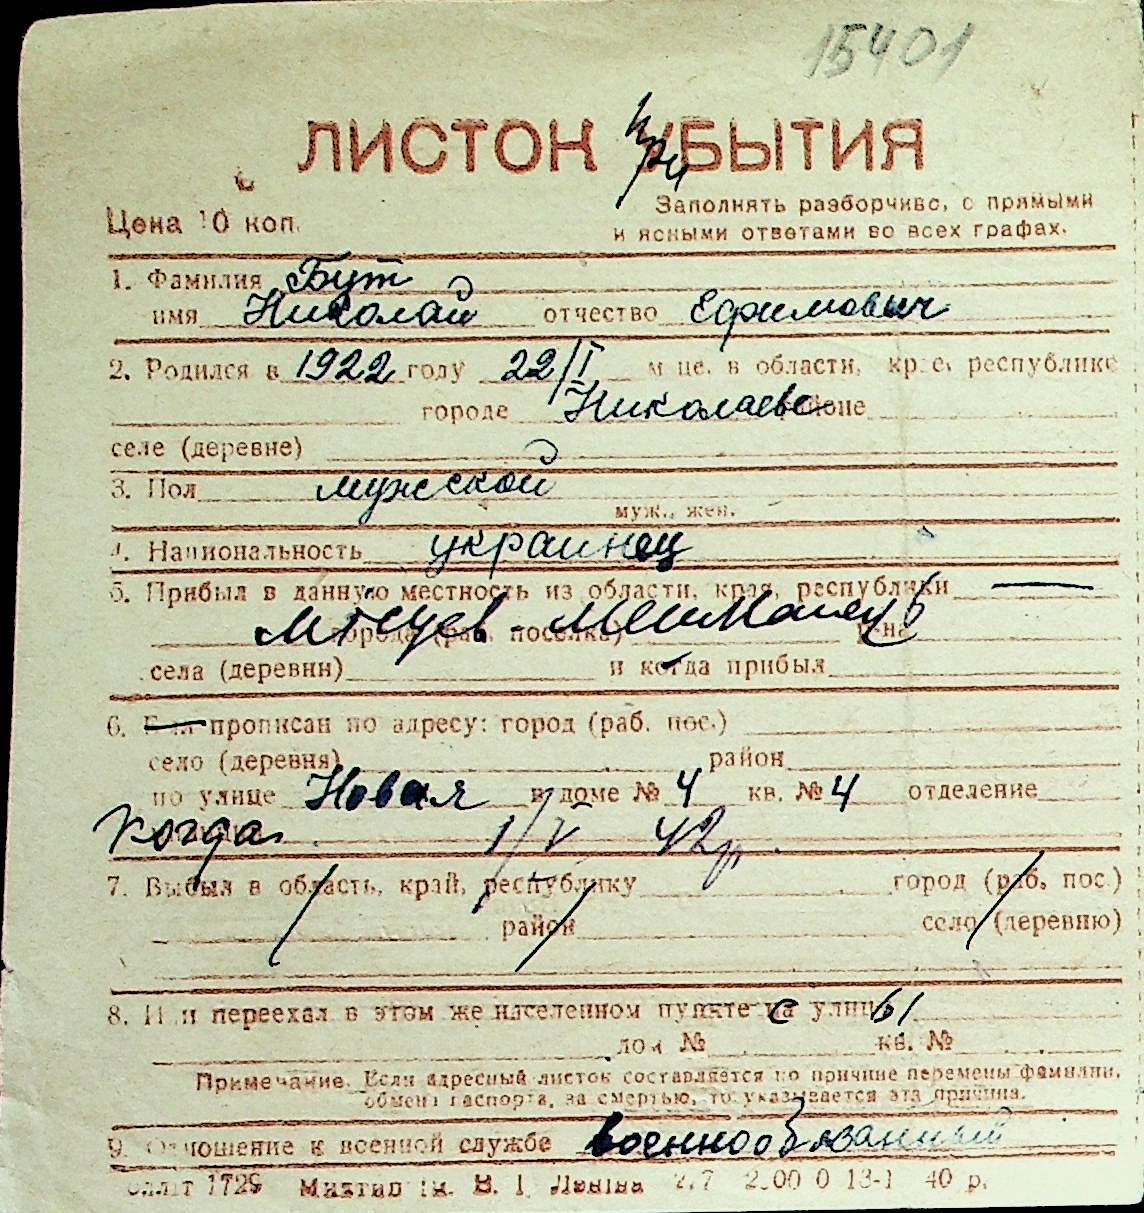 15401
ЛИСТОК ПриБЫТИЯ
Цена 10 коп.
Заполнять разборчиво, с прямыми
и ясными ответами во всех графах.
1. Фамилия Бут
имя Николай отчество Ефимович
2. Родился в 1922 году 22/I м-це, в области, крае, республике
городе Николаеве районе
селе (деревне)
3. Пол мужской
муж., жен.
4. Национальность украинец
5. Прибыл в данную местность из области, края, республики —
города (раб. поселка) р-на
села (деревни) и когда прибыл
6. Был прописан по адресу: город (раб. пос.)
село (деревня) район
по улице Новая в доме № 4 кв. № 4 отделение
когда 1/V 42 г.
7. Выбыл в область, край, республику город (раб. пос.)
район село (деревню)
8. Или переехал в этом же населенном пункте с улицы
дом № кв. №
Примечание. Если адресный листок составляется по причине перемены фамилии,
обмена паспорта, за смертью, то указывается эта причина.
9. Отношение к военной службе военнообязанный
1729 им. В. І. Леніна 40 р.